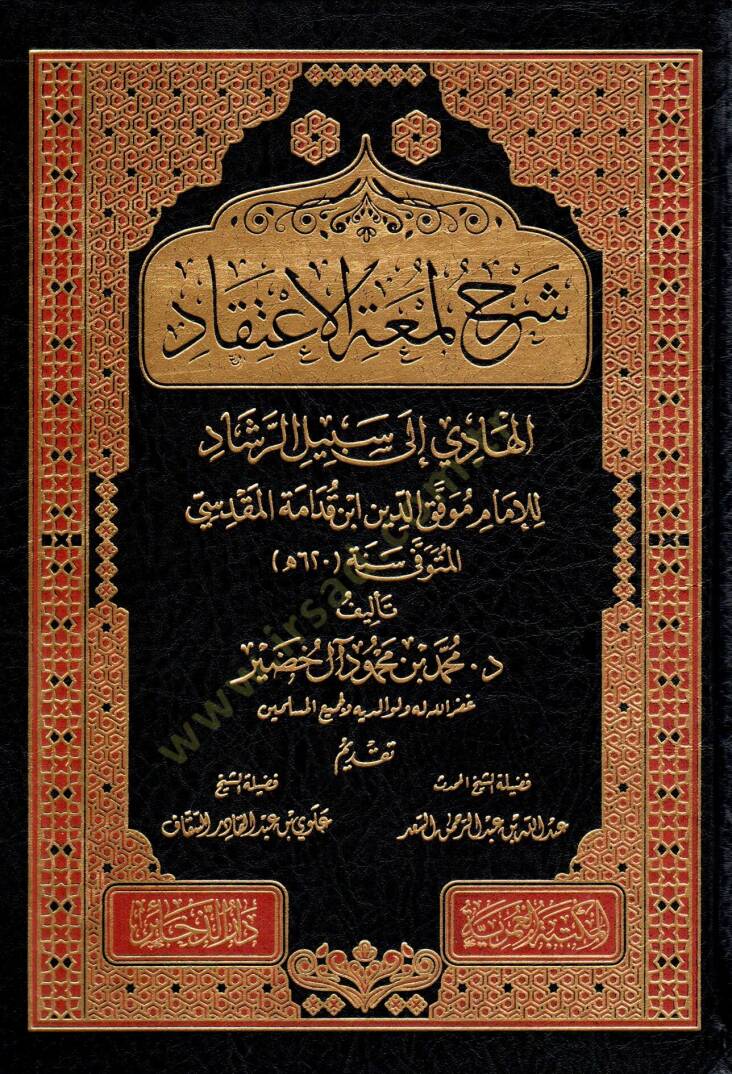 شَرْحُ لُمْعَةِ الاعْتِقَادِ
الهَادِي إِلَى سَبِيلِ الرَّشَادِ
لِلإِمَامِ مُوَفَّقِ الدِّين ابْن قُدَامَة المَقْدِسِيّ
المُتَوَفَّى سَنَة (٦٢٠هـ)
تَأْلِيفُ
د. مُحَمَّد بْن مَحْمُود آل خُضَيْر
غفر الله له ولوالديه ولجميع المسلمين
تَقْدِيم
فضيلة الشيخ المحدث
عبد الله بن عبد الرحمن السعد
فضيلة الشيخ
علوي بن عبد القادر السقاف
المكتبة العمرية
دار الذخائر